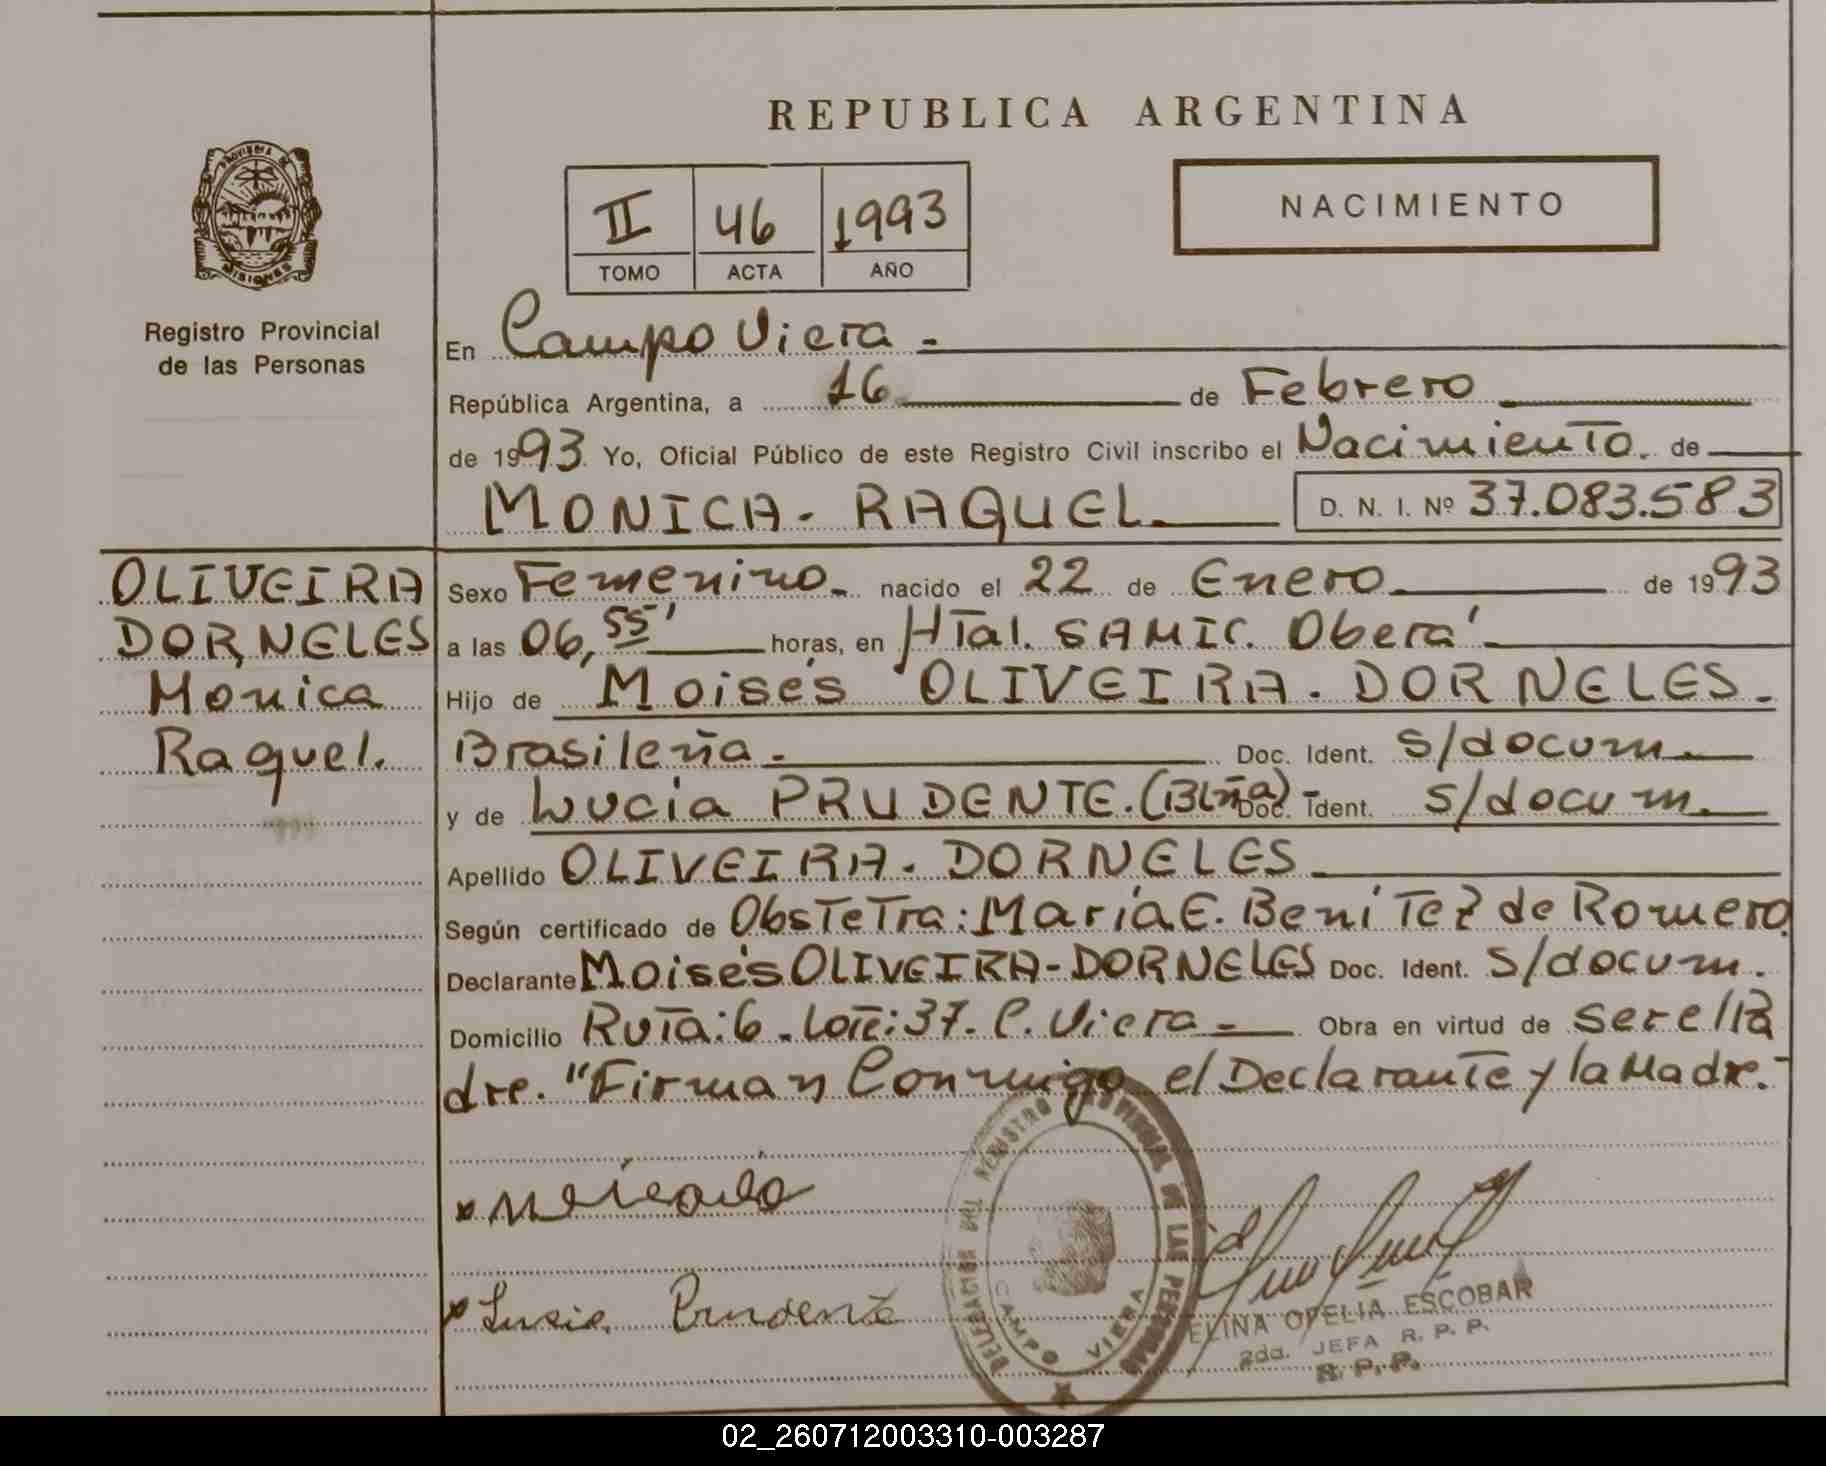 REPUBLICA ARGENTINA
PROVINCIA DE
MISIONES
Registro Provincial
de las Personas
II 46 1993
TOMO ACTA AÑO
NACIMIENTO
En Campo Viera.-
República Argentina, a 16 de Febrero
de 1993. Yo, Oficial Público de este Registro Civil inscribo el Nacimiento. de
MONICA. RAQUEL. D. N. I. Nº 37.083.583
OLIVEIRA
DORNELES
Monica
Raquel.
Sexo Femenino.- nacido el 22 de Enero de 1993
a las 06,55' horas, en HTal. SAMIC. Oberá
Hijo de Moisés OLIVEIRA. DORNELES.
Brasileña.- Doc. Ident. s/docum.
y de Lucia PRUDENTE. (BLña)- Doc. Ident. s/docum.
Apellido OLIVEIRA. DORNELES
Según certificado de ObsTeTra: María E. BeniTez de Romero.
Declarante Moisés OLIVEIRA-DORNELES Doc. Ident. s/docum.
Domicilio RuTa: 6. LoTe: 37. C. Viera.- Obra en virtud de ser el Pa
dre. "Firman Conmigo el Declarante y la Madre.-
x
x Lusia Prudente
DELEGACION DEL REGISTRO PROVINCIAL DE LAS PERSONAS
CAMPO VIERA
ELINA OFELIA ESCOBAR
2da. JEFA R. P. P.
R. P. P.
02_260712003310-003287